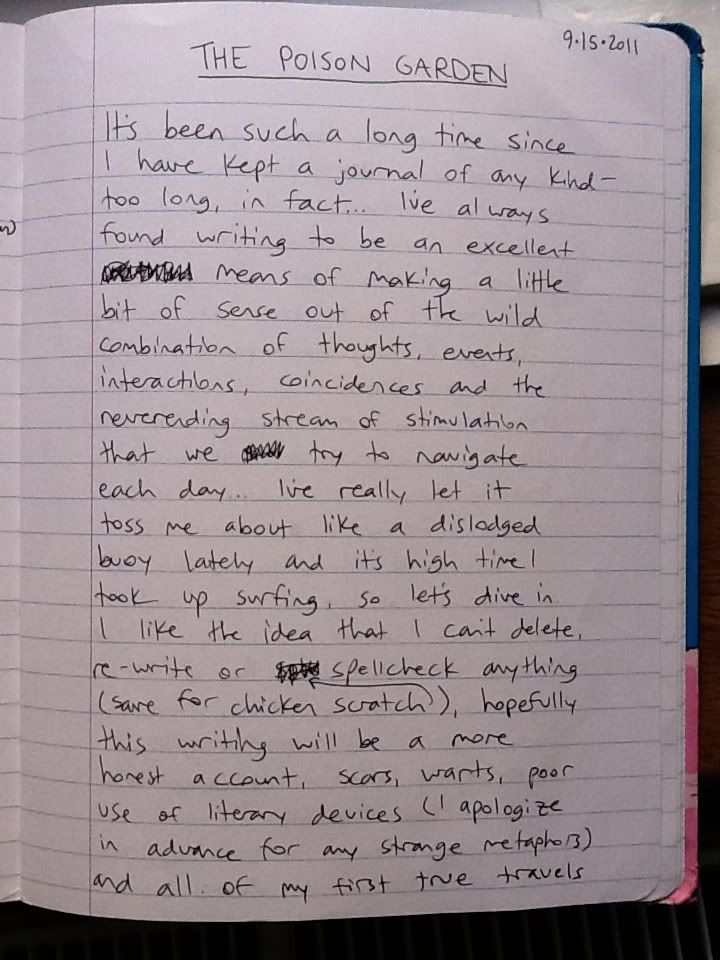 9.15.2011
THE POISON GARDEN
It's been such a long time since
I have kept a journal of any kind-
too long, in fact... I've always
found writing to be an excellent
means of making a little
bit of sense out of the wild
combination of thoughts, events,
interactions, coincidences and the
neverending stream of stimulation
that we try to navigate
each day... I've really let it
toss me about like a dislodged
buoy lately and it's high time I
took up surfing, so let's dive in.
I like the idea that I can't delete,
re-write or spellcheck anything
(save for chicken scratch), hopefully
this writing will be a more
honest account, scars, warts, poor
use of literary devices (I apologize
in advance for any strange metaphors)
and all. of my first true travels